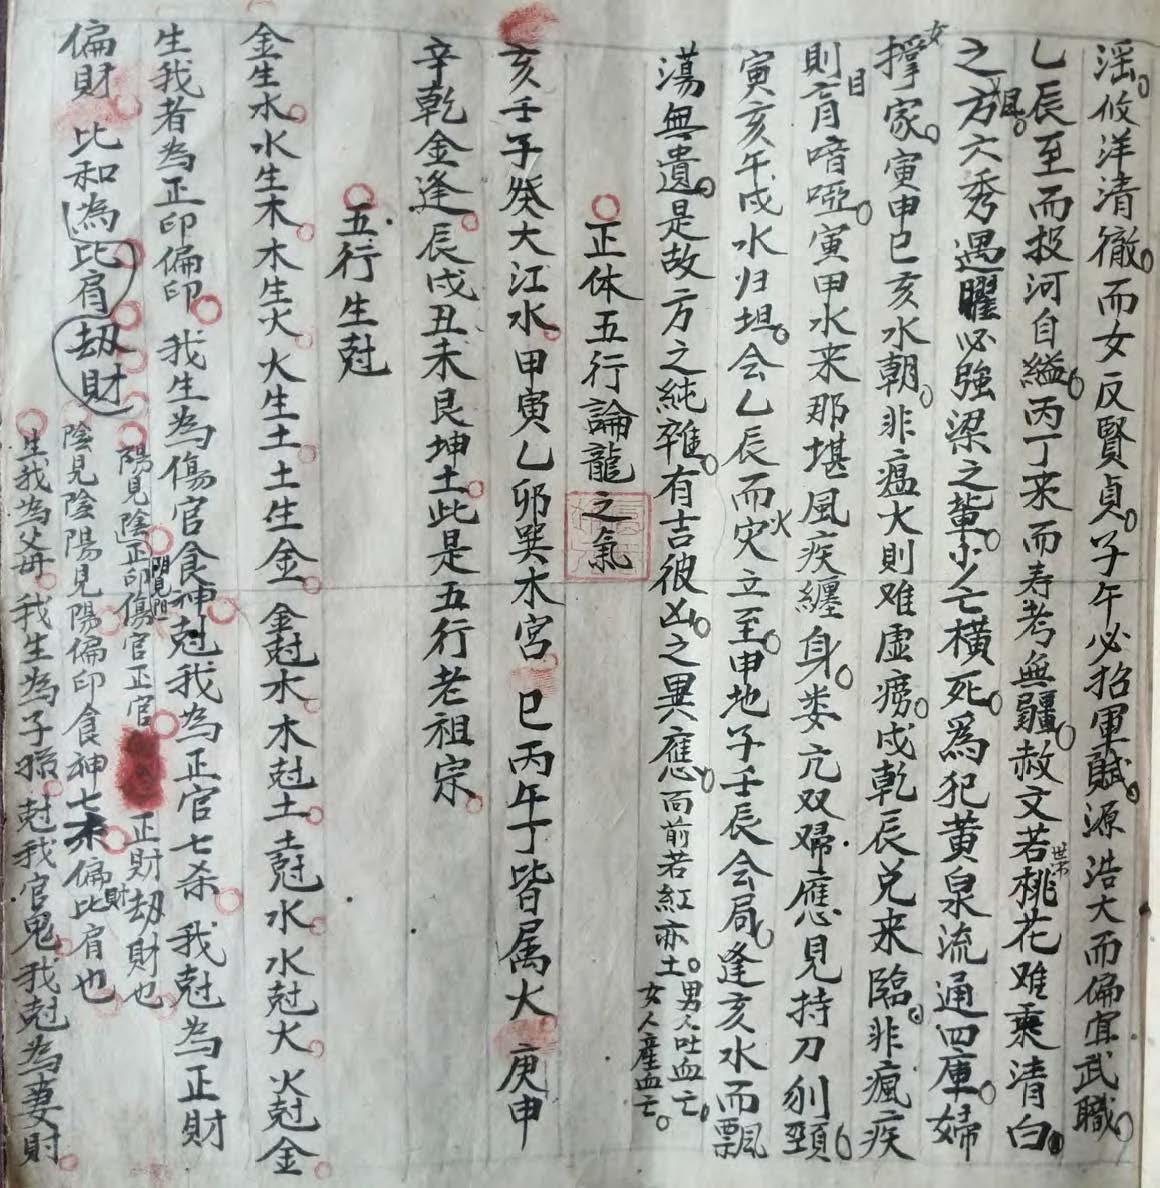 淫。攸洋清徹。而女反賢貞。子午必招軍賦。源浩大而偏宜武職。
乙辰至而投河自縊。丙丁来而寿考無疆。赦文若桃花难乘清白。
之方六秀遇曜必強梁之輩。少亡橫死。為犯黄泉流通四庫。婦
女撑家。寅申巳亥水朝。非瘟火則难虚痨。戌乾辰兑来臨。非瘋疾
則盲瘖啞。寅甲水来那堪風疾纏身。娄亢双婦應見持刀刎頸。
寅亥午戌水归坦。会乙辰而火灾立至。申地子壬辰会局。逢亥水而飄
蕩無遺。是故方之純雜。有吉彼凶。之異應。面前若紅亦土。男人吐血亡。
女人産血亡。
正体五行論龍之氣
亥壬子癸大江水。甲寅乙卯巽木宮 巳丙午丁皆属火 庚申
辛乾金逢。辰戌丑未艮坤土。此是五行老祖宗。
五行生尅
金生水。水生木。木生火。火生土。土生金。金尅木。木尅土。土尅水。水尅火。火尅金
生我者為正印偏印。我生為傷官食神。尅我為正官七杀。我尅為正財
偏財 比和為比肩劫財
陽見陰陰見陽正印傷官正官 正財劫財也
陰見陰陽見陽偏印食神七杀。偏財比肩也
生我為父母。我生為子孫。尅我官鬼。我尅為妻財。